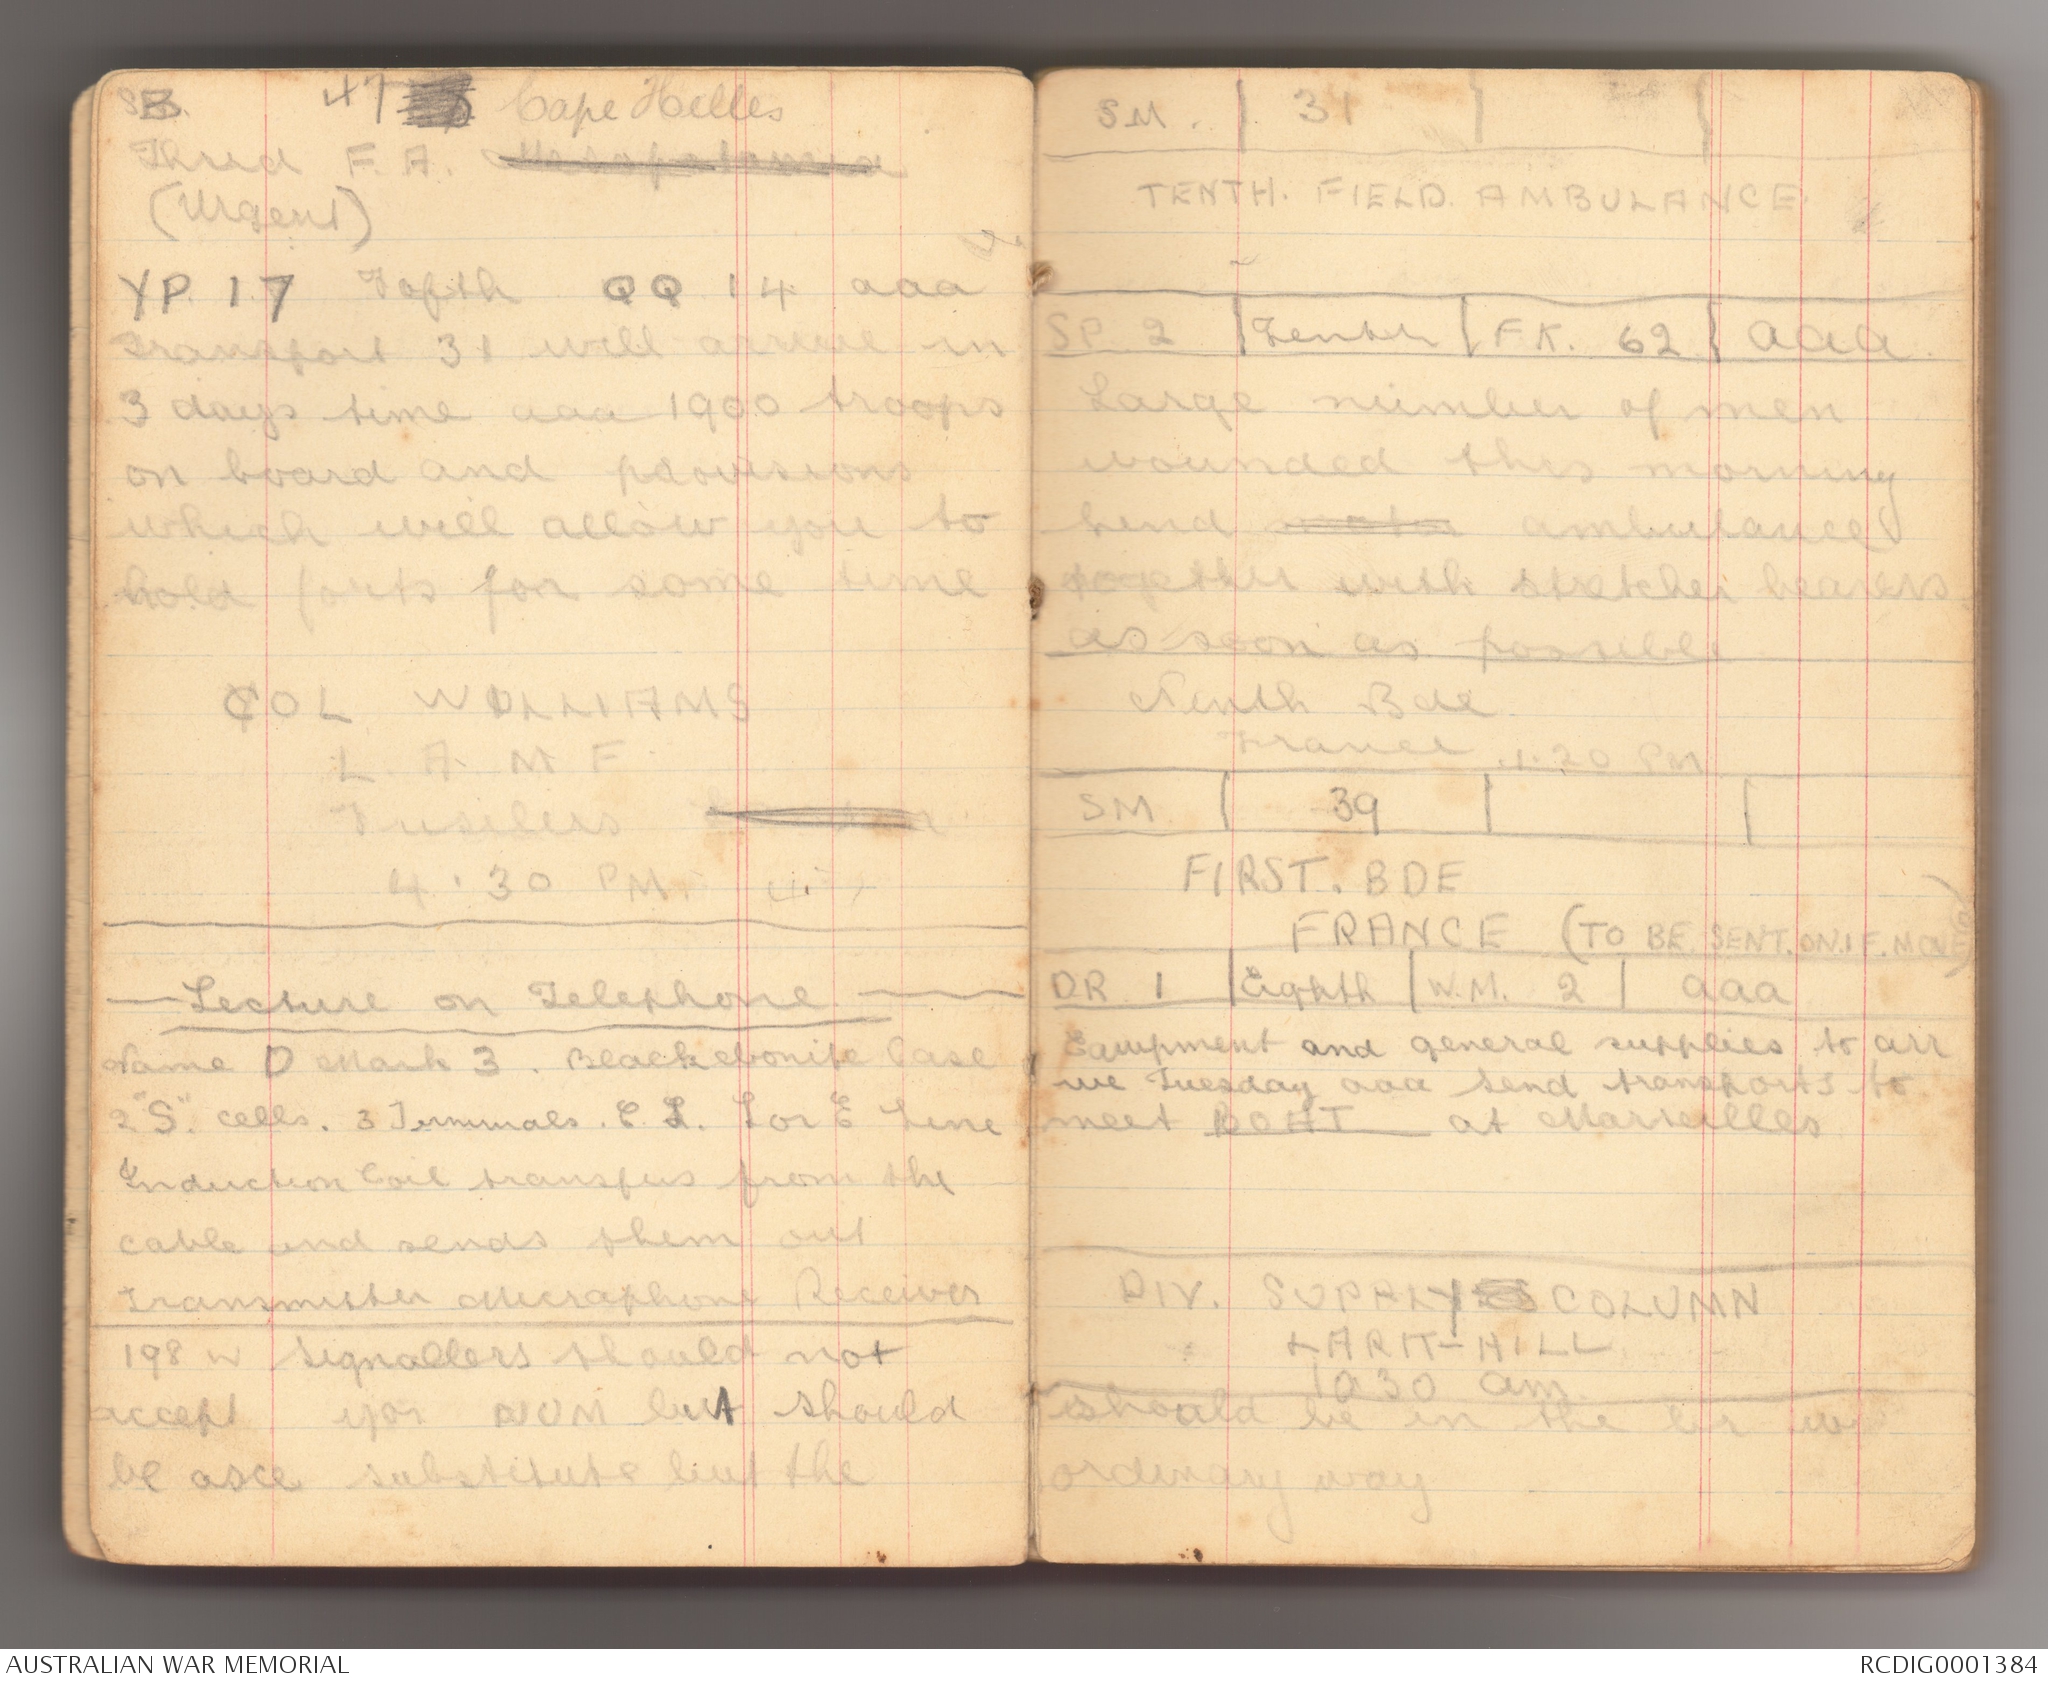 SB. 47 Cape Helles
Third F.A. Mesopotamia
(Urgent)
YP. 17 QQ 14 aaa
Transport 31 will arrive in
3 days time aaa 1900 troops
on board and provisions
which will allow you to
hold forts for some time
COL WILLIAMS
L. A. M F.
Fusilers
4.30 PM.
Lecture on Telephone
Name D Mark 3. Black ebonite Case
2 "S". cells. 3 Terminals. E. L. L or E Line
Induction Coil transfers from the
cable and sends them out
Transmitter Micraphone Receiver
198 w Signallers should not
accept NUM but should
be substitute but the
SM. | 31 | |
TENTH. FIELD. AMBULANCE.
SP 2 | Tenth | FK. 62 | aaa.
Large number of men
wounded this morning
send motor ambulance
together with stretcher bearers
as soon as possible
Ninth Bde
France 1.20 PM
SM | 39 | |
FIRST. BDE
FRANCE (TO BE SENT. ON. IF. MOVED)
DR 1 | Eighth | W.M. 2 | aaa
Equipment and general supplies to arr
ive Tuesday aaa send transports to
meet BOAT at Marseilles
DIV. SUPPLY COLUMN
HILL
10 30 am.
should be in the
ordinary way
AUSTRALIAN WAR MEMORIAL
RCDIG0001384